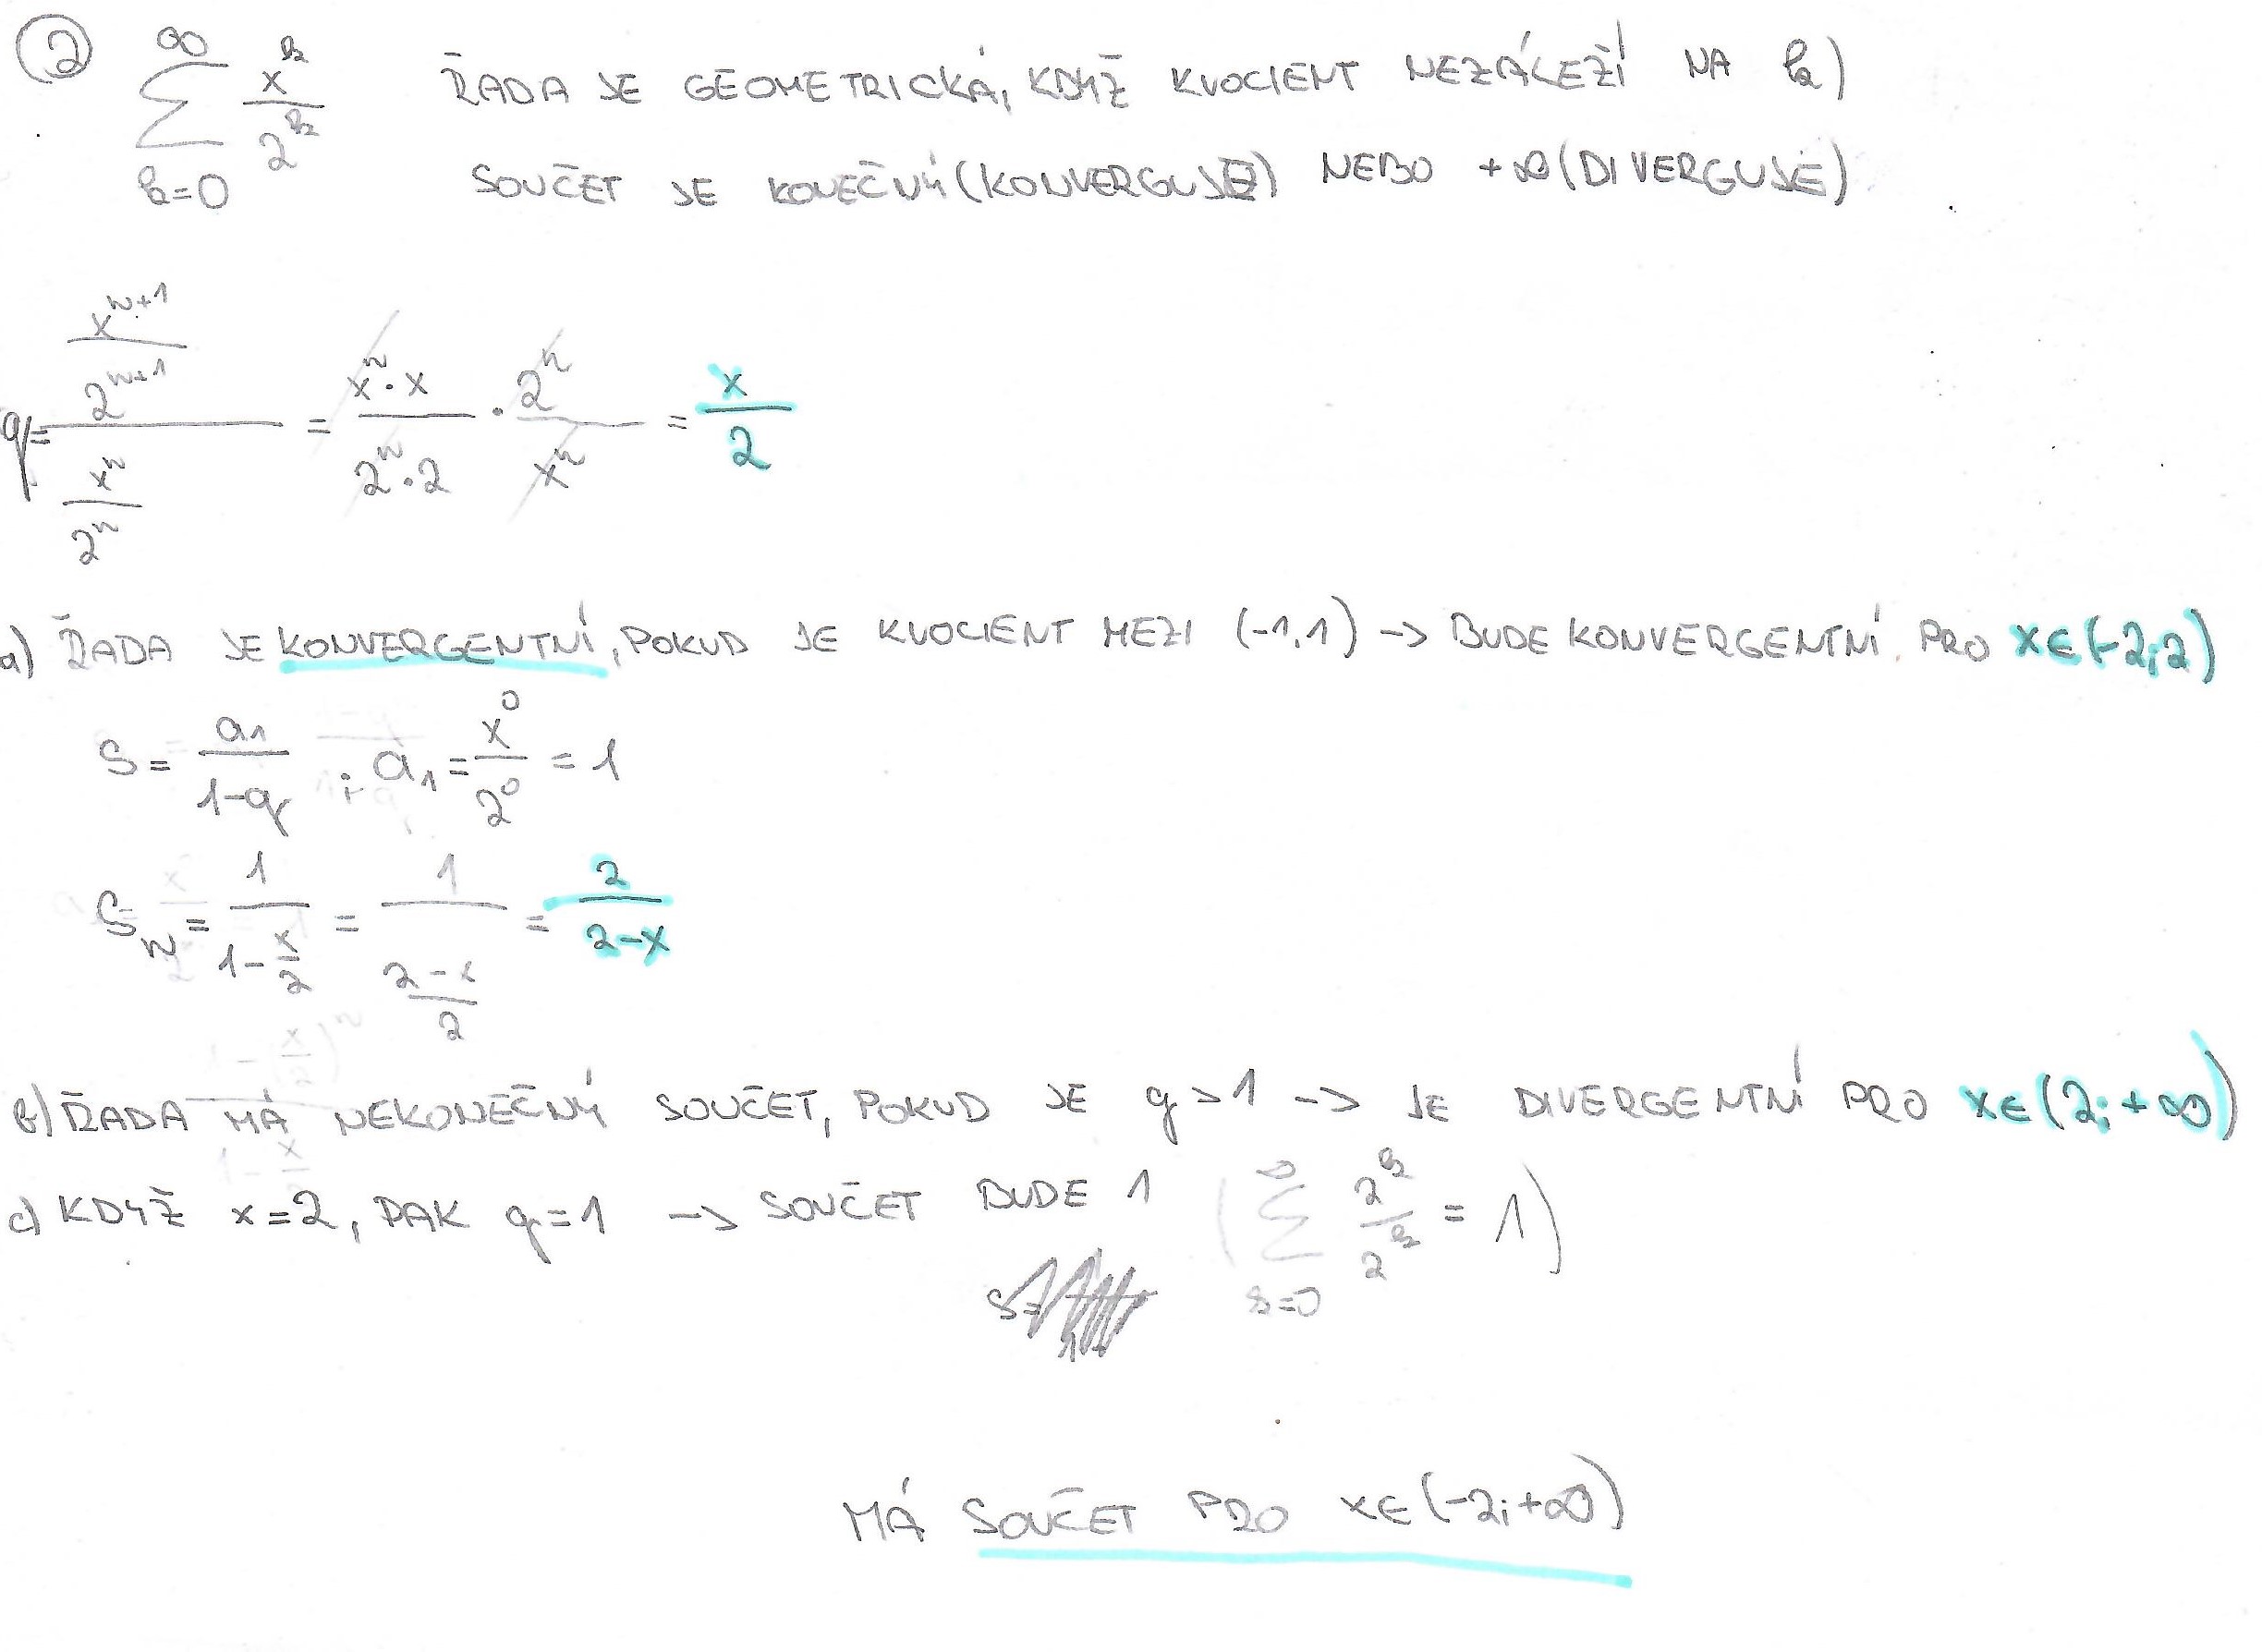 ② ∞∑k=0 x^k/2^k ŘADA JE GEOMETRICKÁ, KDYŽ KVOCIENT NEZÁLEŽÍ NA k)
SOUČET JE KONEČNÝ (KONVERGUJE) NEBO +∞ (DIVERGUJE)
q = (x^(n+1)/2^(n+1))/(x^n/2^n) = (x^n·x)/(2^n·2) · 2^n/x^n = x/2
a) ŘADA JE KONVERGENTNÍ, POKUD JE KVOCIENT MEZI (-1,1) -> BUDE KONVERGENTNÍ PRO x∈(-2;2)
S = a1/(1-q) ; a1 = x^0/2^0 = 1
Sn = 1/(1-x/2) = 1/((2-x)/2) = 2/(2-x)
b) ŘADA MÁ NEKONEČNÝ SOUČET, POKUD JE q>1 -> JE DIVERGENTNÍ PRO x∈(2;+∞)
c) KDYŽ x=2, PAK q=1 -> SOUČET BUDE 1 (∞∑k=0 2^k/2^k = 1)
S=
MÁ SOUČET PRO x∈(-2;+∞)